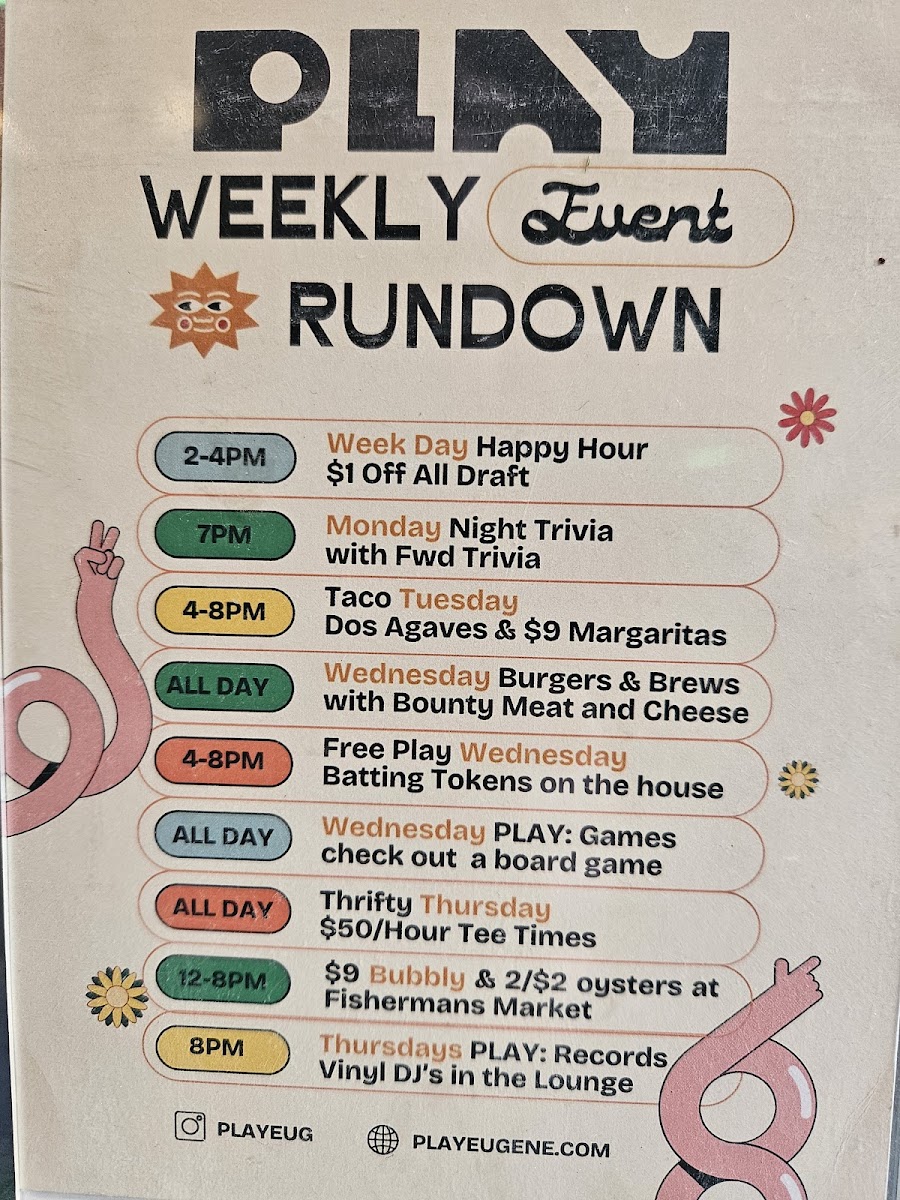 PLAY
WEEKLY Event
RUNDOWN
2-4PM
Week Day Happy Hour
$1 Off All Draft
7PM
Monday Night Trivia
with Fwd Trivia
4-8PM
Taco Tuesday
Dos Agaves & $9 Margaritas
ALL DAY
Wednesday Burgers & Brews
with Bounty Meat and Cheese
4-8PM
Free Play Wednesday
Batting Tokens on the house
ALL DAY
Wednesday PLAY: Games
check out a board game
ALL DAY
Thrifty Thursday
$50/Hour Tee Times
12-8PM
$9 Bubbly & 2/$2 oysters at
Fishermans Market
8PM
Thursdays PLAY: Records
Vinyl DJ's in the Lounge
PLAYEUG
PLAYEUGENE.COM